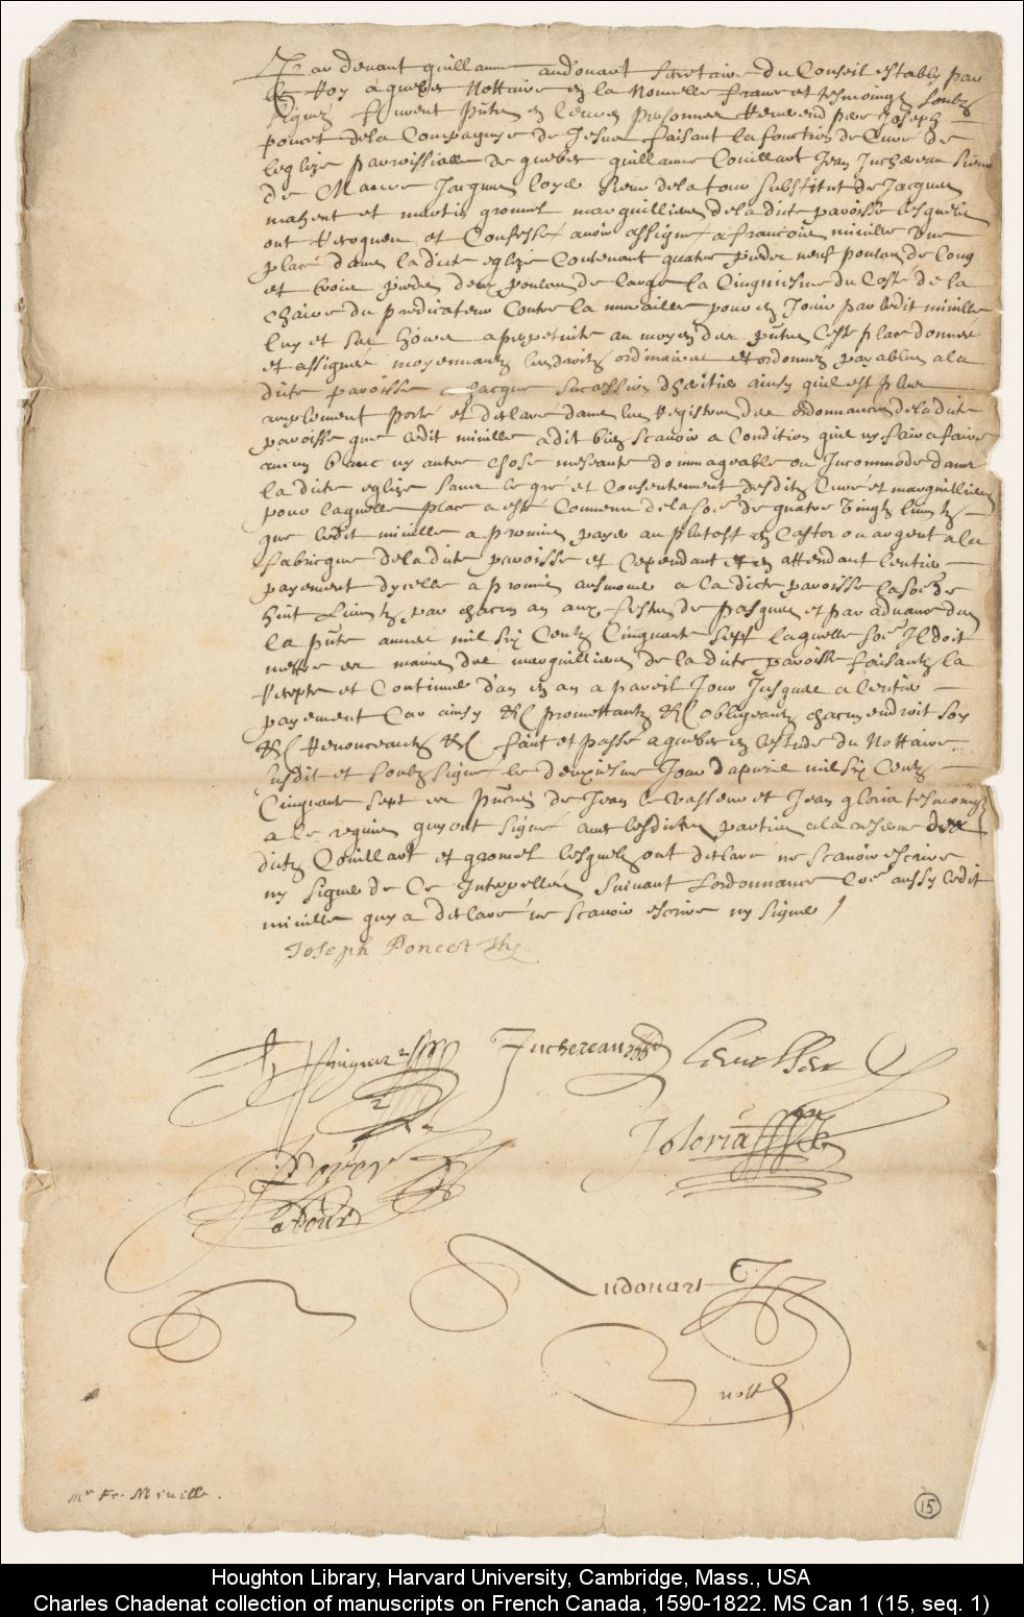 Par devant guillaume audouart secretaire du Conseil estably par
le Roy a quebec Nottaire en la Nouvelle france et tesmoings soubz
signez furent pñts en leurs personnes Reverend pere Joseph
poncet de la Compagnye de Jesus faisant la fonction de Curé de
leglize parroissialle de quebec guillaume Couillart Jean Juchereau sieur
de Maure Jacques loyer sieur de la tour substitut de Jacques
maheut et martin grouvel marguilliers de la dicte paroisse lesquels
ont Recogneu et Confessé avoir assigné a francois miville une
place dans la dicte eglize Contenant quatre pieds neuf poulces de long
et trois pieds deux poulces de large la Cinquiesme du Costé de la
chaire du predicateur Contre la muraille pour en Jouir par ledit miville
luy et ses hoirs a perpetuité au moyen des pñtes Ceste place donnée
et assignée moyennant les droitz ordinaires et ordonnez payables a la
dicte paroisse chacque succession d'heritier ainsy quil est plus
amplement porté et declaré dans les Registres des ordonnances de la dicte
paroisse que ledit miville a dit bien scavoir a Condition quil ny faira faire
aucun banc ny autre chose messeante dommageable ou Incommode dans
la dicte eglize sans le gré et Consentement desditz Curé et marguilliers
pour laquelle place a esté Convenu de la soẽ de quatre vingtz livres tz
que ledit miville a promis payer au plutost en Castor ou argent a la
fabricque de la dicte paroisse et Cependant et en attendant lentier
payement dycelle a promis aumosner a la dicte paroisse la soẽ de
huit Livres tz par chacun an aux festes de pasques et par advance des
la pñte année mil six Centz Cinquante sept laquelle soẽ Il doit
mettre es mains des marguilliers de la dicte paroisse faisant la
recepte et Continuer d'an en an a pareil Jour Jusques a lentier
payement Car ainsy &c promettant &c obligeant chacun endroit soy
&c Renonceant &c faict et passé a quebec en lestude du Nottaire
susdit et soubz signé le deuxiesme Jour dapvril mil six Centz
Cinquante sept es pñces de Jean levasseur et Jean gloria tesmoings
a ce requis quy ont signé avec lesdictes parties a la reserve des
dictz Couillart et grouvel lesquels ont declaré ne scavoir escrire
ny signer de Ce Interpellés suivant Lordonnance Coẽ aussy ledit
miville quy a declaré ne scavoir escrire ny signer
Joseph Poncet
Juchereau
Levasser
JGloria
Loyer
Latour
Audouart
nott
Mr Fr. Miville.
15
Houghton Library, Harvard University, Cambridge, Mass., USA
Charles Chadenat collection of manuscripts on French Canada, 1590-1822. MS Can 1 (15, seq. 1)